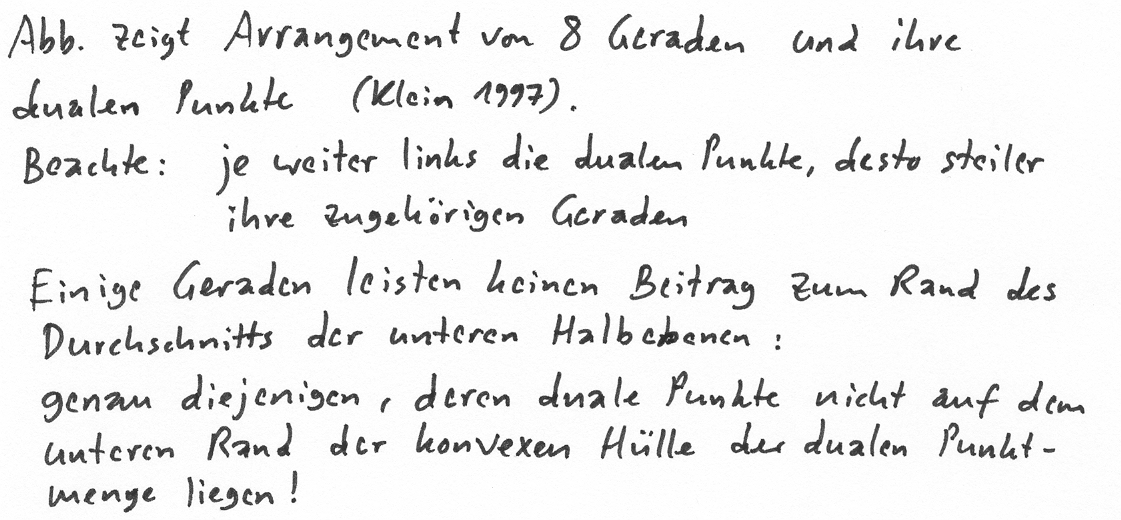 Abb. zeigt Arrangement von 8 Geraden und ihre
dualen Punkte (Klein 1997).
Beachte: je weiter links die dualen Punkte, desto steiler
ihre zugehörigen Geraden
Einige Geraden leisten keinen Beitrag zum Rand des
Durchschnitts der unteren Halbebenen:
genau diejenigen, deren duale Punkte nicht auf dem
unteren Rand der konvexen Hülle der dualen Punkt-
menge liegen!